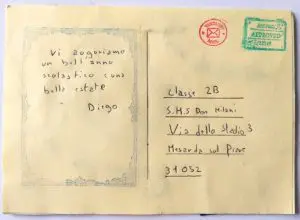 Vi auguriamo
un bell'anno
scolastico e una
bella estate
Diego
APPROVED
Classe 2B
S.M.S Don Milani
Via dello Stadio 3
Meserada sul Piave
31052